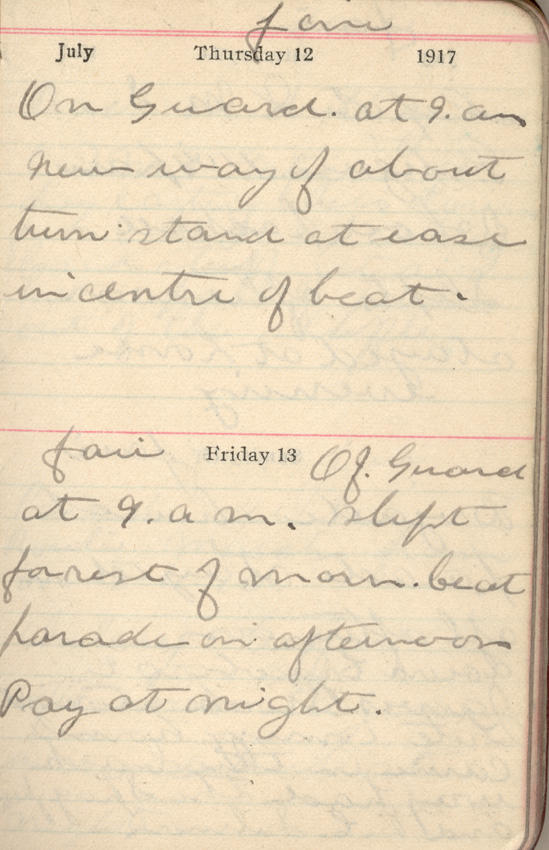 fair
July Thursday 12 1917
On Guard. at 9. am
new way of about
turn stand at ease
in centre of beat.
fair Friday 13 Of. Guard
at 9. a m. slept
forest of morn. beat
parade on afternoon
Pay at night.